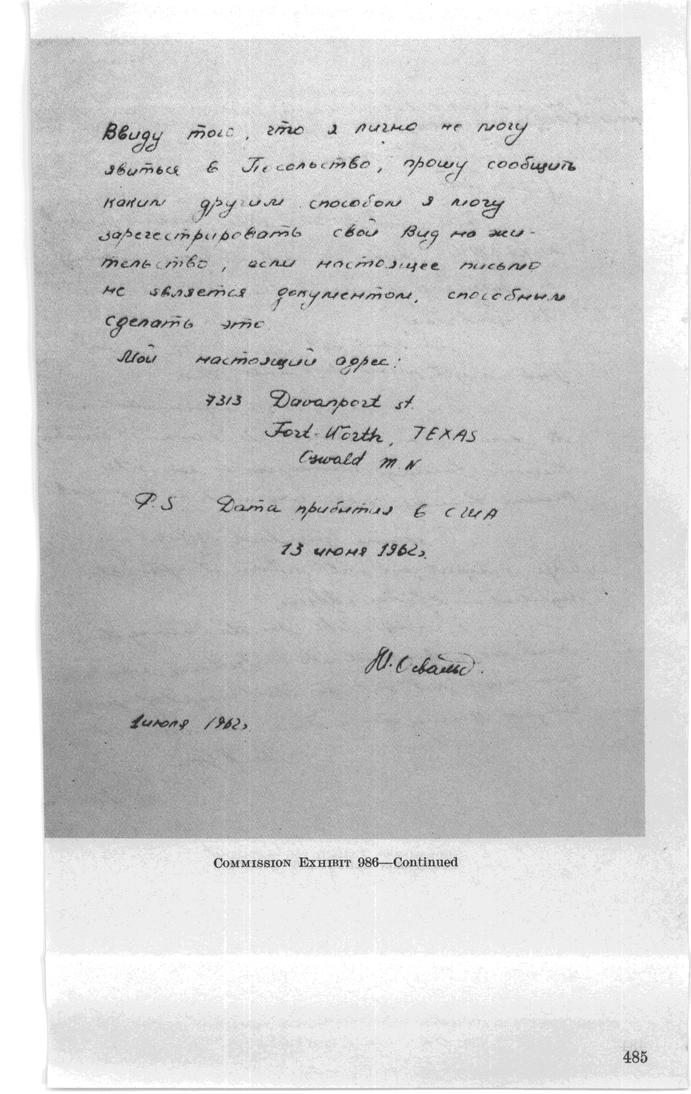 Ввиду того, что я лично не могу
явиться в Посольство, прошу сообщить
каким другим способом я могу
зарегестрировать свой Вид на жи-
тельство, если настоящее письмо
не является документом, способным
сделать это
Мой настоящий адрес:
7313 Davanport st.
Fort-Worth, TEXAS
Oswald M. N
P.S Дата прибытия в США
13 июня 1962г
М. Освальд.
1 июля 1962г
COMMISSION EXHIBIT 986—Continued
485